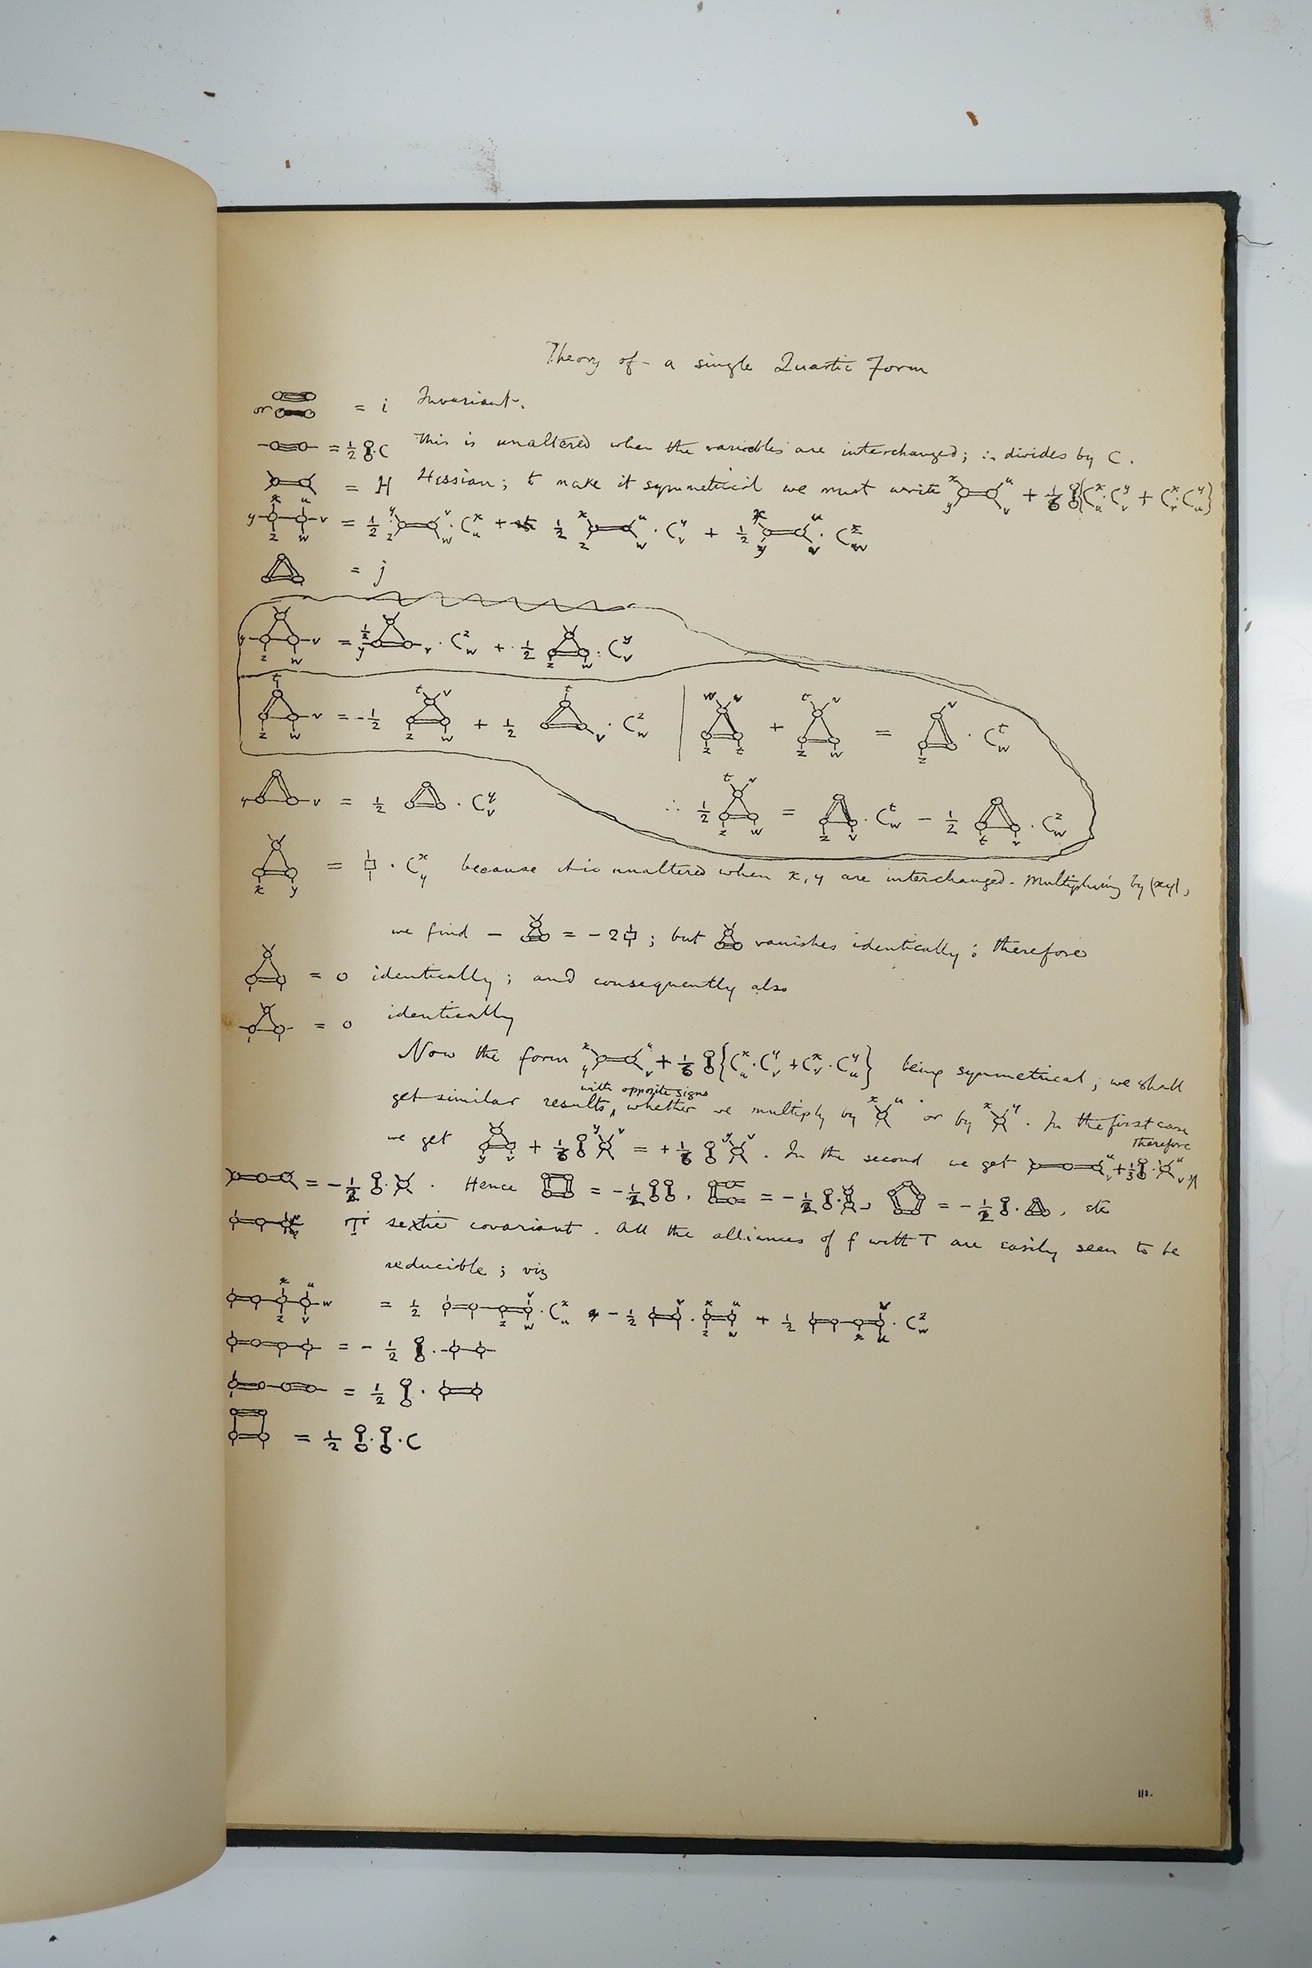 Theory of a single Quartic Form
or = i Invariant.
= 1/2 . C This is unaltered when the variables are interchanged; ∴ divides by C.
= H Hessian; to make it symmetrical we must write x y u v + 1/6 {C^x_u . C^y_v + C^x_v . C^y_u}
y x u v z w = 1/2 y z v w . C^x_u + 1/2 x z u w . C^y_v + 1/2 x y u v . C^z_w
= j
y v z w = 1/2 y v . C^z_w + 1/2 z w . C^y_v
t z w v = -1/2 t v z w + 1/2 t v . C^z_w | w v z t + t v z w = v z . C^t_w
y v = 1/2 . C^y_v ∴ 1/2 t v z w = z v . C^t_w - 1/2 t v . C^z_w
x y = . C^x_y because it is unaltered when x, y are interchanged. Multiplying by (xy),
we find - = -2 ; but vanishes identically; therefore
= 0 identically; and consequently also
= 0 identically
Now the form x y u v + 1/6 {C^x_u . C^y_v + C^x_v . C^y_u} being symmetrical, we shall
with opposite signs
get similar results, whether we multiply by x u or by x y. In the first case
therefore
we get y v + 1/6 y v = + 1/6 y v . In the second we get + 1/3 .
= -1/2 . . Hence = -1/2 , = -1/2 . , = -1/2 . , etc
T sextic covariant. All the alliances of f with T are easily seen to be
reducible; viz
x u z v w = 1/2 z v w . C^x_u - 1/2 v . x u z w + 1/2 v x u . C^z_w
= - 1/2 .
= 1/2 .
= 1/2 . . C
111.